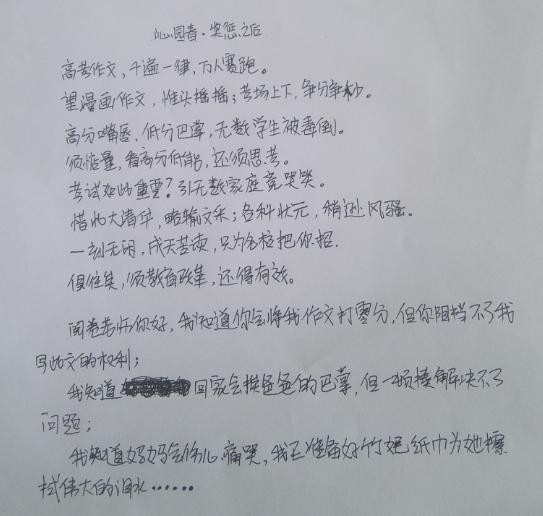 沁园春·奖惩之后
高考作文，千遍一律，万人赛跑。
望漫画作文，惟头摇摇；考场上下，争分争秒。
高分嘴唇，低分巴掌，无数学生被毒倒。
须惦量，看高分低能，还须思考。
考试如此重要？引无数家庭竞哭笑。
惜北大清华，略输文采；各科状元，稍逊风骚。
一刻无闲，成天苦读，只为名校把你招。
俱往矣，须教育改革，还得有效。
阅卷老师你好，我知道你会将我作文打零分，但你阻挡不了我
写此文的权利；
我知道回家会挨爸爸的巴掌，但一顿揍解决不了
问题；
我知道妈妈会伤心痛哭，我已准备好竹妃纸巾为她擦
拭伟大的泪水……